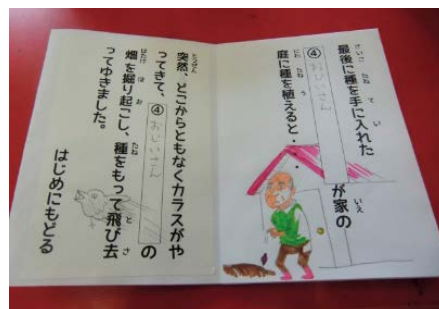 最後に種を手に入れた
④
おじいさん
が家の
庭に種を植えると・・・
突然、どこからともなくカラスがや
ってきて、④おじいさんの
畑を掘り起こし、種をもって飛び去
ってゆきました。
はじめにもどる